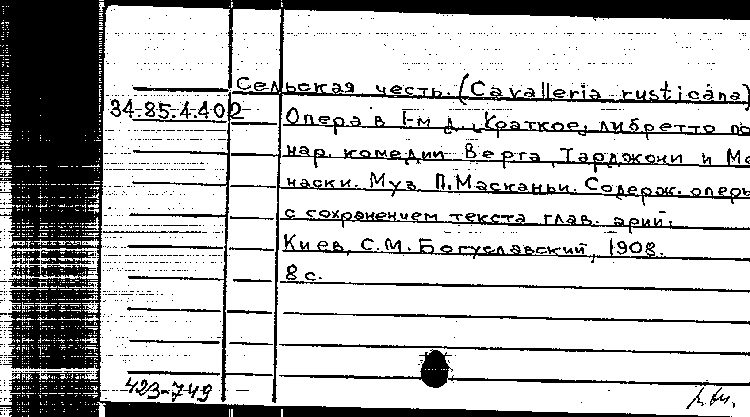 Сельская честь. (Cavalleria rusticana)
34.85.4.402
Опера в 1-м д. Краткое либретто по
нар. комедии Верга, Тарджони и Ме
наски. Муз. П. Масканьи. Содерж. оперы
с сохранением текста глав. арий.
Киев, С.М. Богуславский, 1908.
8 с.
423-749